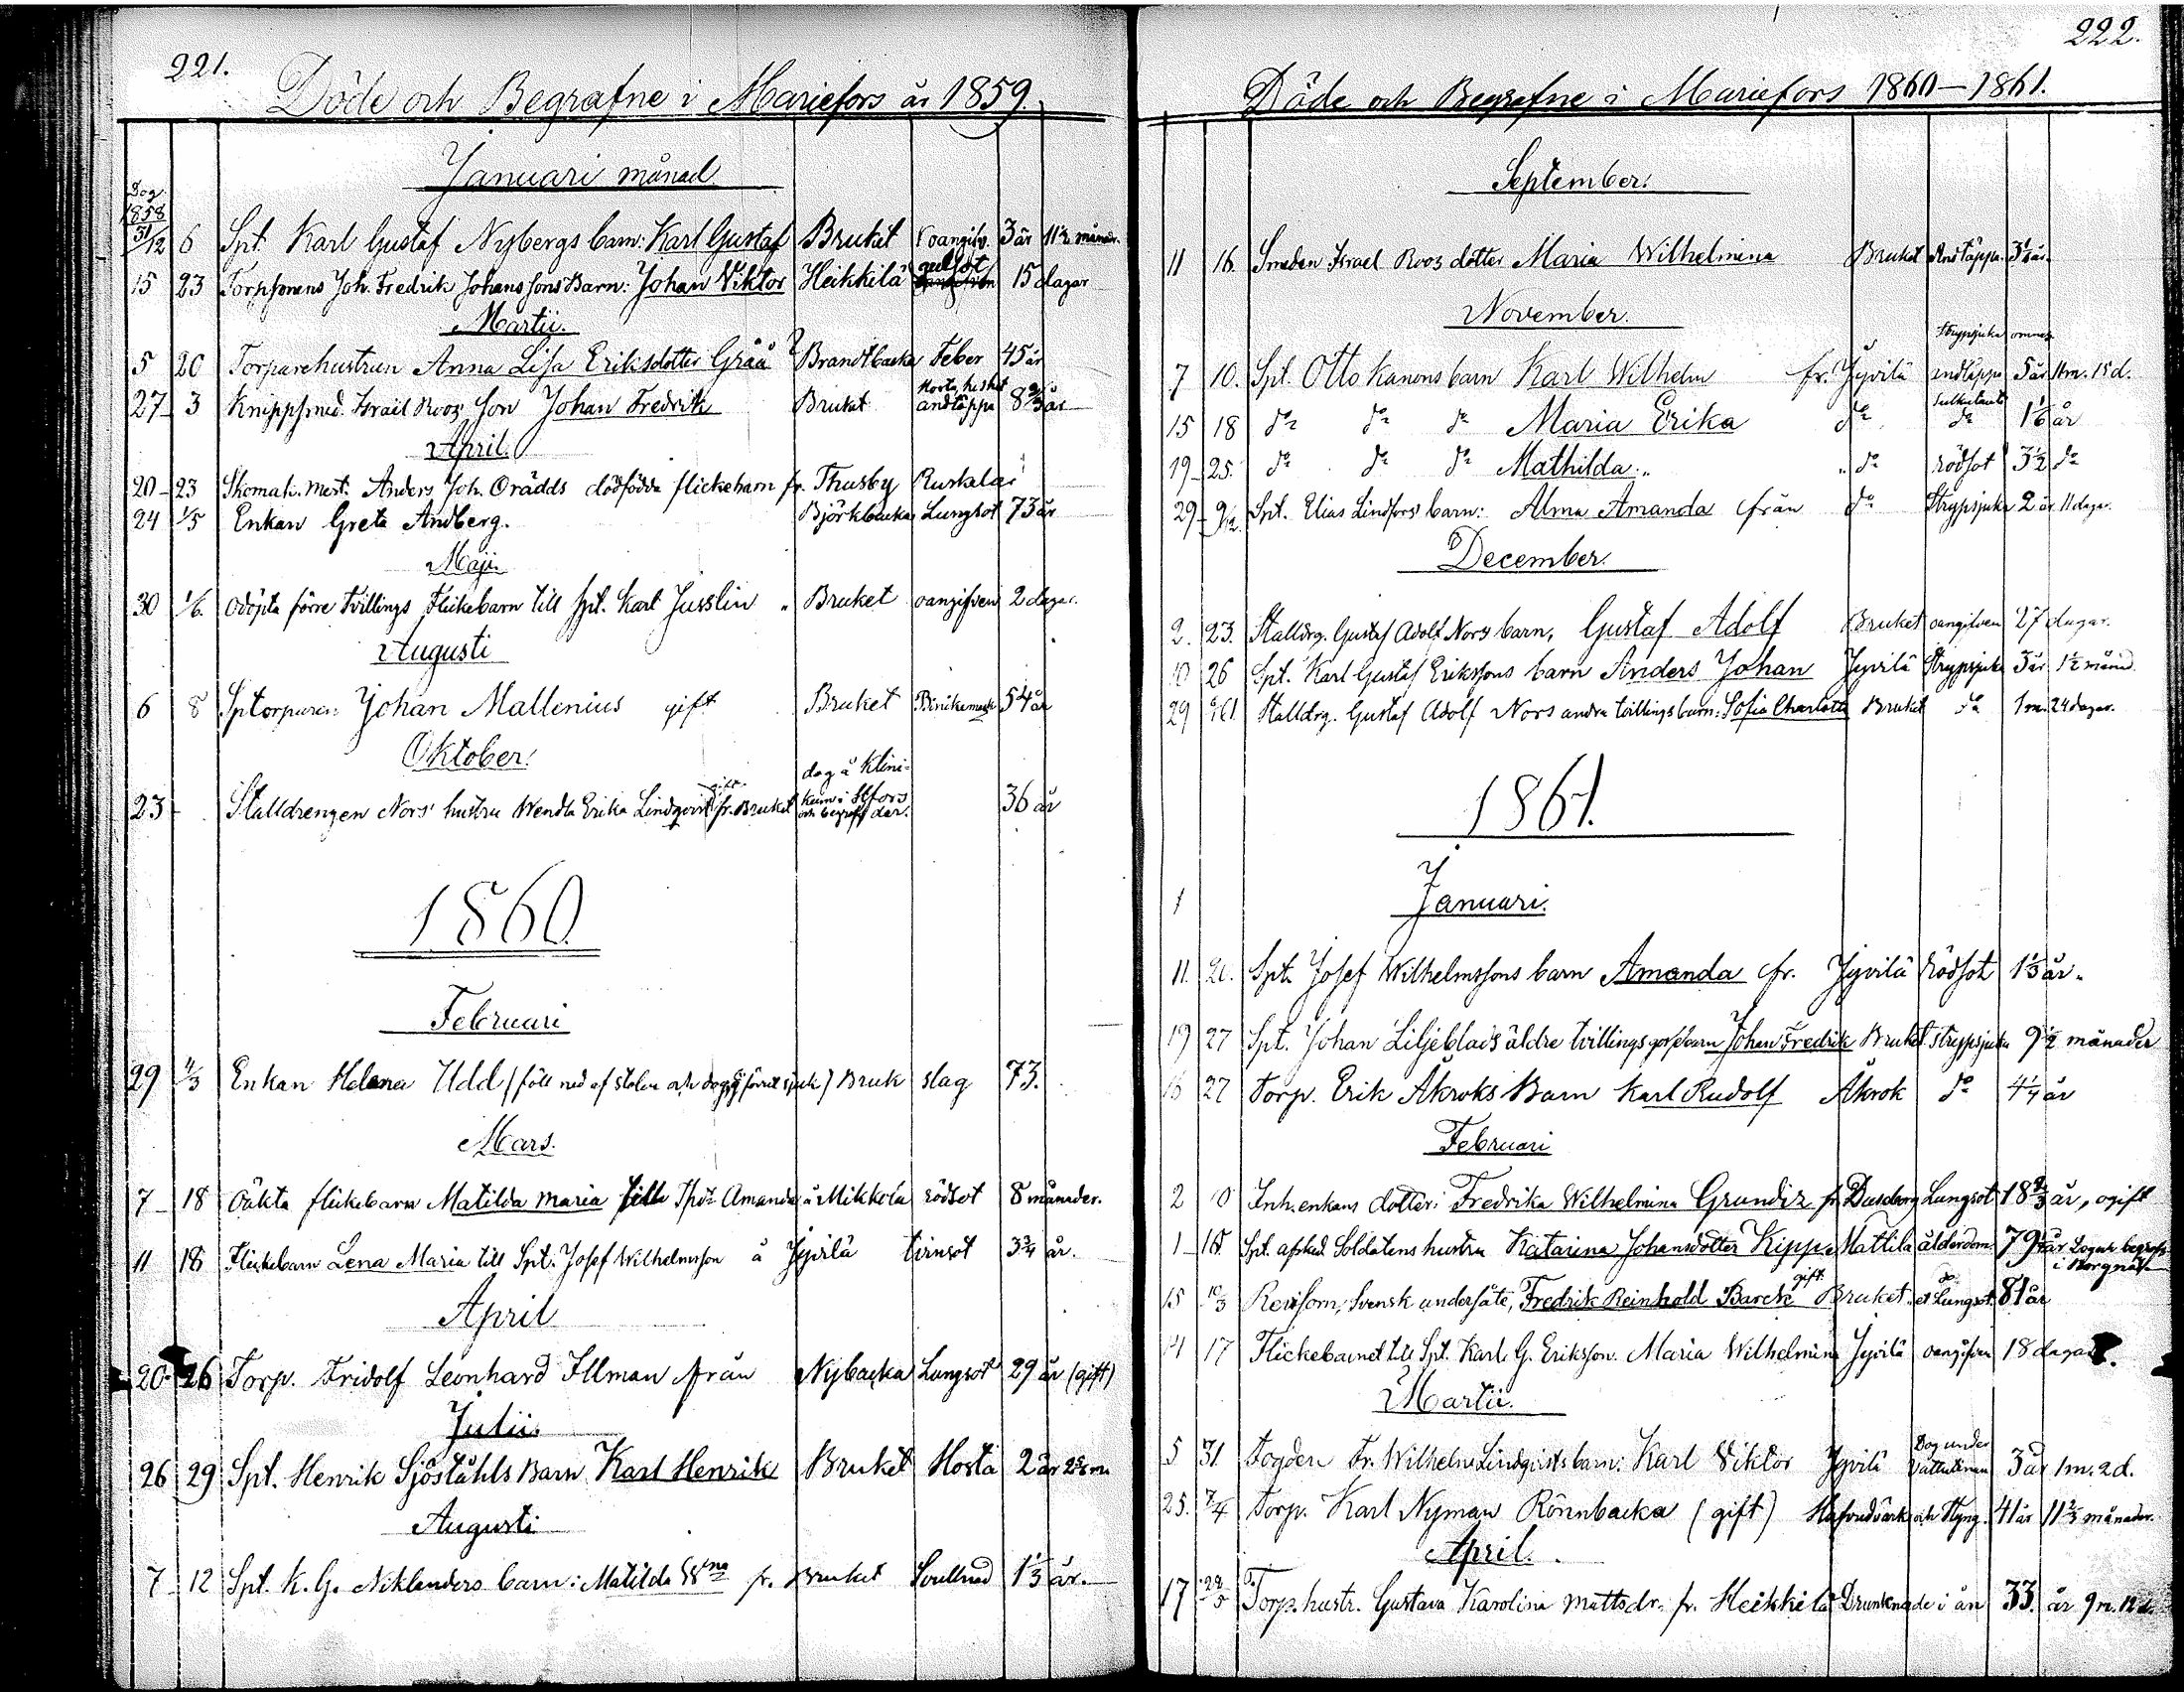 221.
Döde och Begrafne i Mariefors år 1859.
Januari månad.
Dog 1858
31/12 6 Spt. Karl Gustaf Nybergs barn: Karl Gustaf Bruket oangifv. 3 år 11 1/2 månad.
15 23 Torpsonens Joh. Fredrik Johanssons Barn: Johan Viktor Heikkilä gulsot 15 dagar
Martii.
5 20 Torparehustrun Anna Lisa Eriksdotter Gråå Brandtbacka Feber 45 år
27 3 Knippsmed. Israil Roos' son Johan Fredrik Bruket Hosta, hishet andtäppa 8 2/3 år
April.
20 23 Skomak. mest. Anders Joh. Orädds dödfödda flickebarn fr. Thusby Ruskela
24 1/5 Enkan Greta Andberg. Björkbacka Lungsot 73 år
Maji.
30 1/6. Odöpta förre tvillings flickebarn till Spt. Karl Jusslin " Bruket oangifven 2 dagar.
Augusti
6 8 Sptorparen Johan Mallenius gift Bruket Binikemask 54 år
Oktober.
23 Stalldrengen Nors' hustru Wendla Erika Lindqvist gift fr. Bruket dog å Klinikum i Hfors och begrafs der. 36 år
1860
Februari
29 4/3 Enkan Helena Udd (föll ned af stolen och dog, ej förrut sjuk) Bruk slag 73.
Mars.
7 18 Oäkta flickebarn Matilda Maria till Amanda å Mikkola rödsot 8 månader.
11 18 Flickebarn Lena Maria till Spt. Josef Wilhelmsson å Jyvilä tvinsot 3 3/4 år.
April
20 26 Torp. Fridolf Leonhard Illman från Nybacka Lungsot 29 år (gift)
Julii.
26 29 Spt. Henrik Sjöståhls Barn Karl Henrik Bruket Hosta 2 år
Augusti
7 12 Spt. K. G. Niklanders barn: Matilda W:na fr. Bruket 1 1/3 år.
222.
Döde och Begrafne i Mariefors 1860—1861.
September.
11 16. Smeden Israel Roos dotter Maria Wilhelmina Bruket Andtäppa. 3 1/2 år.
November.
7 10. Spt. Otto Kanons barn Karl Wilhelm fr. Jyvilä Strypsjuka andtäppa 5 år 11 m. 15 d.
15 18 do do do Maria Erika do do 1 1/6 år
19 25. do do do Mathilda " " do rödsot 3 1/2 do
29 9/12. Spt. Elias Lindfors' barn: Alma Amanda från do Strypsjuka 2 år 11 dagar.
December.
2. 23. Stalldrg. Gustaf Adolf Nors barn, Gustaf Adolf Bruket oangifven 27 dagar.
10 26 Spt. Karl Gustaf Erikssons barn Anders Johan Jyvilä Strypsjuka 3 år 1 1/2 månad
29 Stalldrg. Gustaf Adolf Nors andra tvillingsbarn: Sofia Charlotta Bruket do 1 m. 24 dagar.
1861.
1 Januari.
11. 20. Spt. Josef Wilhelmssons barn Amanda fr. Jyvilä rödsot 1 1/3 år.
19 27 Spt. Johan Liljeblads äldre tvillings gossebarn Johan Fredrik Bruket strypsjuka 9 1/2 månader
16 27 Torp. Erik Åkroks Barn Karl Rudolf Åkrok do 4 1/4 år
Februari
2 10 Inh. enkans dotter: Fredrika Wilhelmina Grundiz fr. Dusaborg Lungsot 18 2/3 år, ogift
1 10. Spt. afsked. Soldatens hustru Katarina Johansdotter Kippa Mattila ålderdom. 79 år begrafs. i Borgnäs
15 10/3 Revisorn, Svensk undersåte, Fredrik Reinhold Barck gift Bruket. do et Lungsot. 81 år
14 17 Flickebarnet till Spt. Karl G. Eriksson. Maria Wilhelmina Jyvilä oangifven 18 dagar.
Martii.
5 31. Fogden Fr. Wilhelm Lindqvists barn: Karl Viktor Jyvilä Dog under 3 år 1 m. 2 d.
25. 7/4 Torp. Karl Nyman Rönnbacka (gift) Hufvudvärk och Styng. 41 år 11 2/3 månader.
April.
17 28/5 Torp. hustr. Gustava Karolina Mattsdr. fr. Heikkilä Drunknade i ån 33. år 9 m. 12 d.